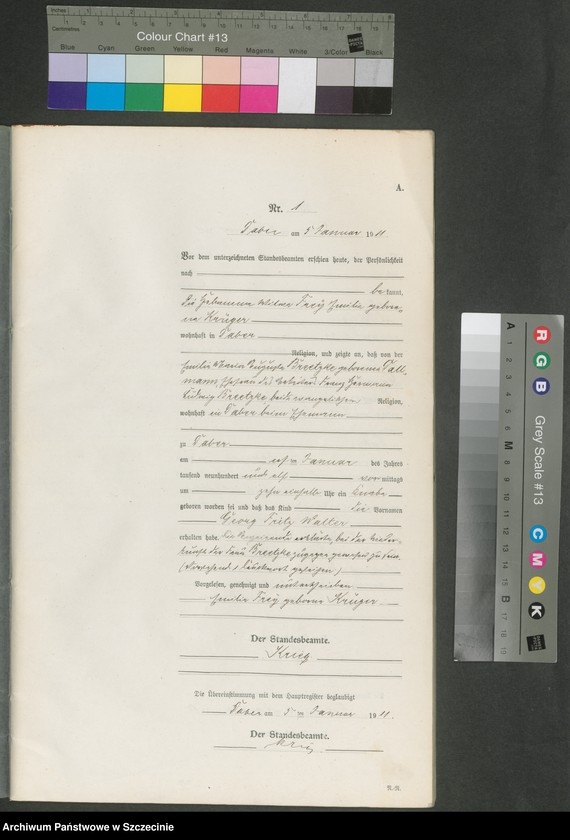 Inches
Centimetres
Colour Chart #13
Blue Cyan Green Yellow Red Magenta White 3/Color Black
A.
Nr. 1
Taber am 5 Januar 1911
Vor dem unterzeichneten Standesbeamten erschien heute, der Persönlichkeit
nach
bekannt,
die Hebamme Witwe Frey Emilie gebore-
ne Krüger
wohnhaft in Taber
Religion, und zeigte an, daß von der
Emilie Auguste Breetzke geborene
mann, Ehefrau des Franz Hermann
Ludwig Breetzke beide evangelischen Religion,
wohnhaft in Taber beim Ehemann
zu Taber
am Januar des Jahres
tausend neunhundert und elf vormittags
um zehn einhalb Uhr ein Knabe
geboren worden sei und daß das Kind die Vornamen
Georg Fritz Walter
erhalten habe. Die erklärte, bei der Nieder-
kunft der Frau Breetzke zugegen gewesen zu sein.
(Vorstehend gestrichen)
Vorgelesen, genehmigt und unterschrieben
Emilie Frey geborene Krüger
Der Standesbeamte.
Krieg
Die Übereinstimmung mit dem Hauptregister beglaubigt
Taber am 5 ten Januar 1911.
Der Standesbeamte.
Krieg
R.-R.
A 1 2 3 4 5 6 M 8 9 10 11 12 13 14 15 B 17 18 19
R G B
Grey Scale #13
C M Y K
Archiwum Państwowe w Szczecinie